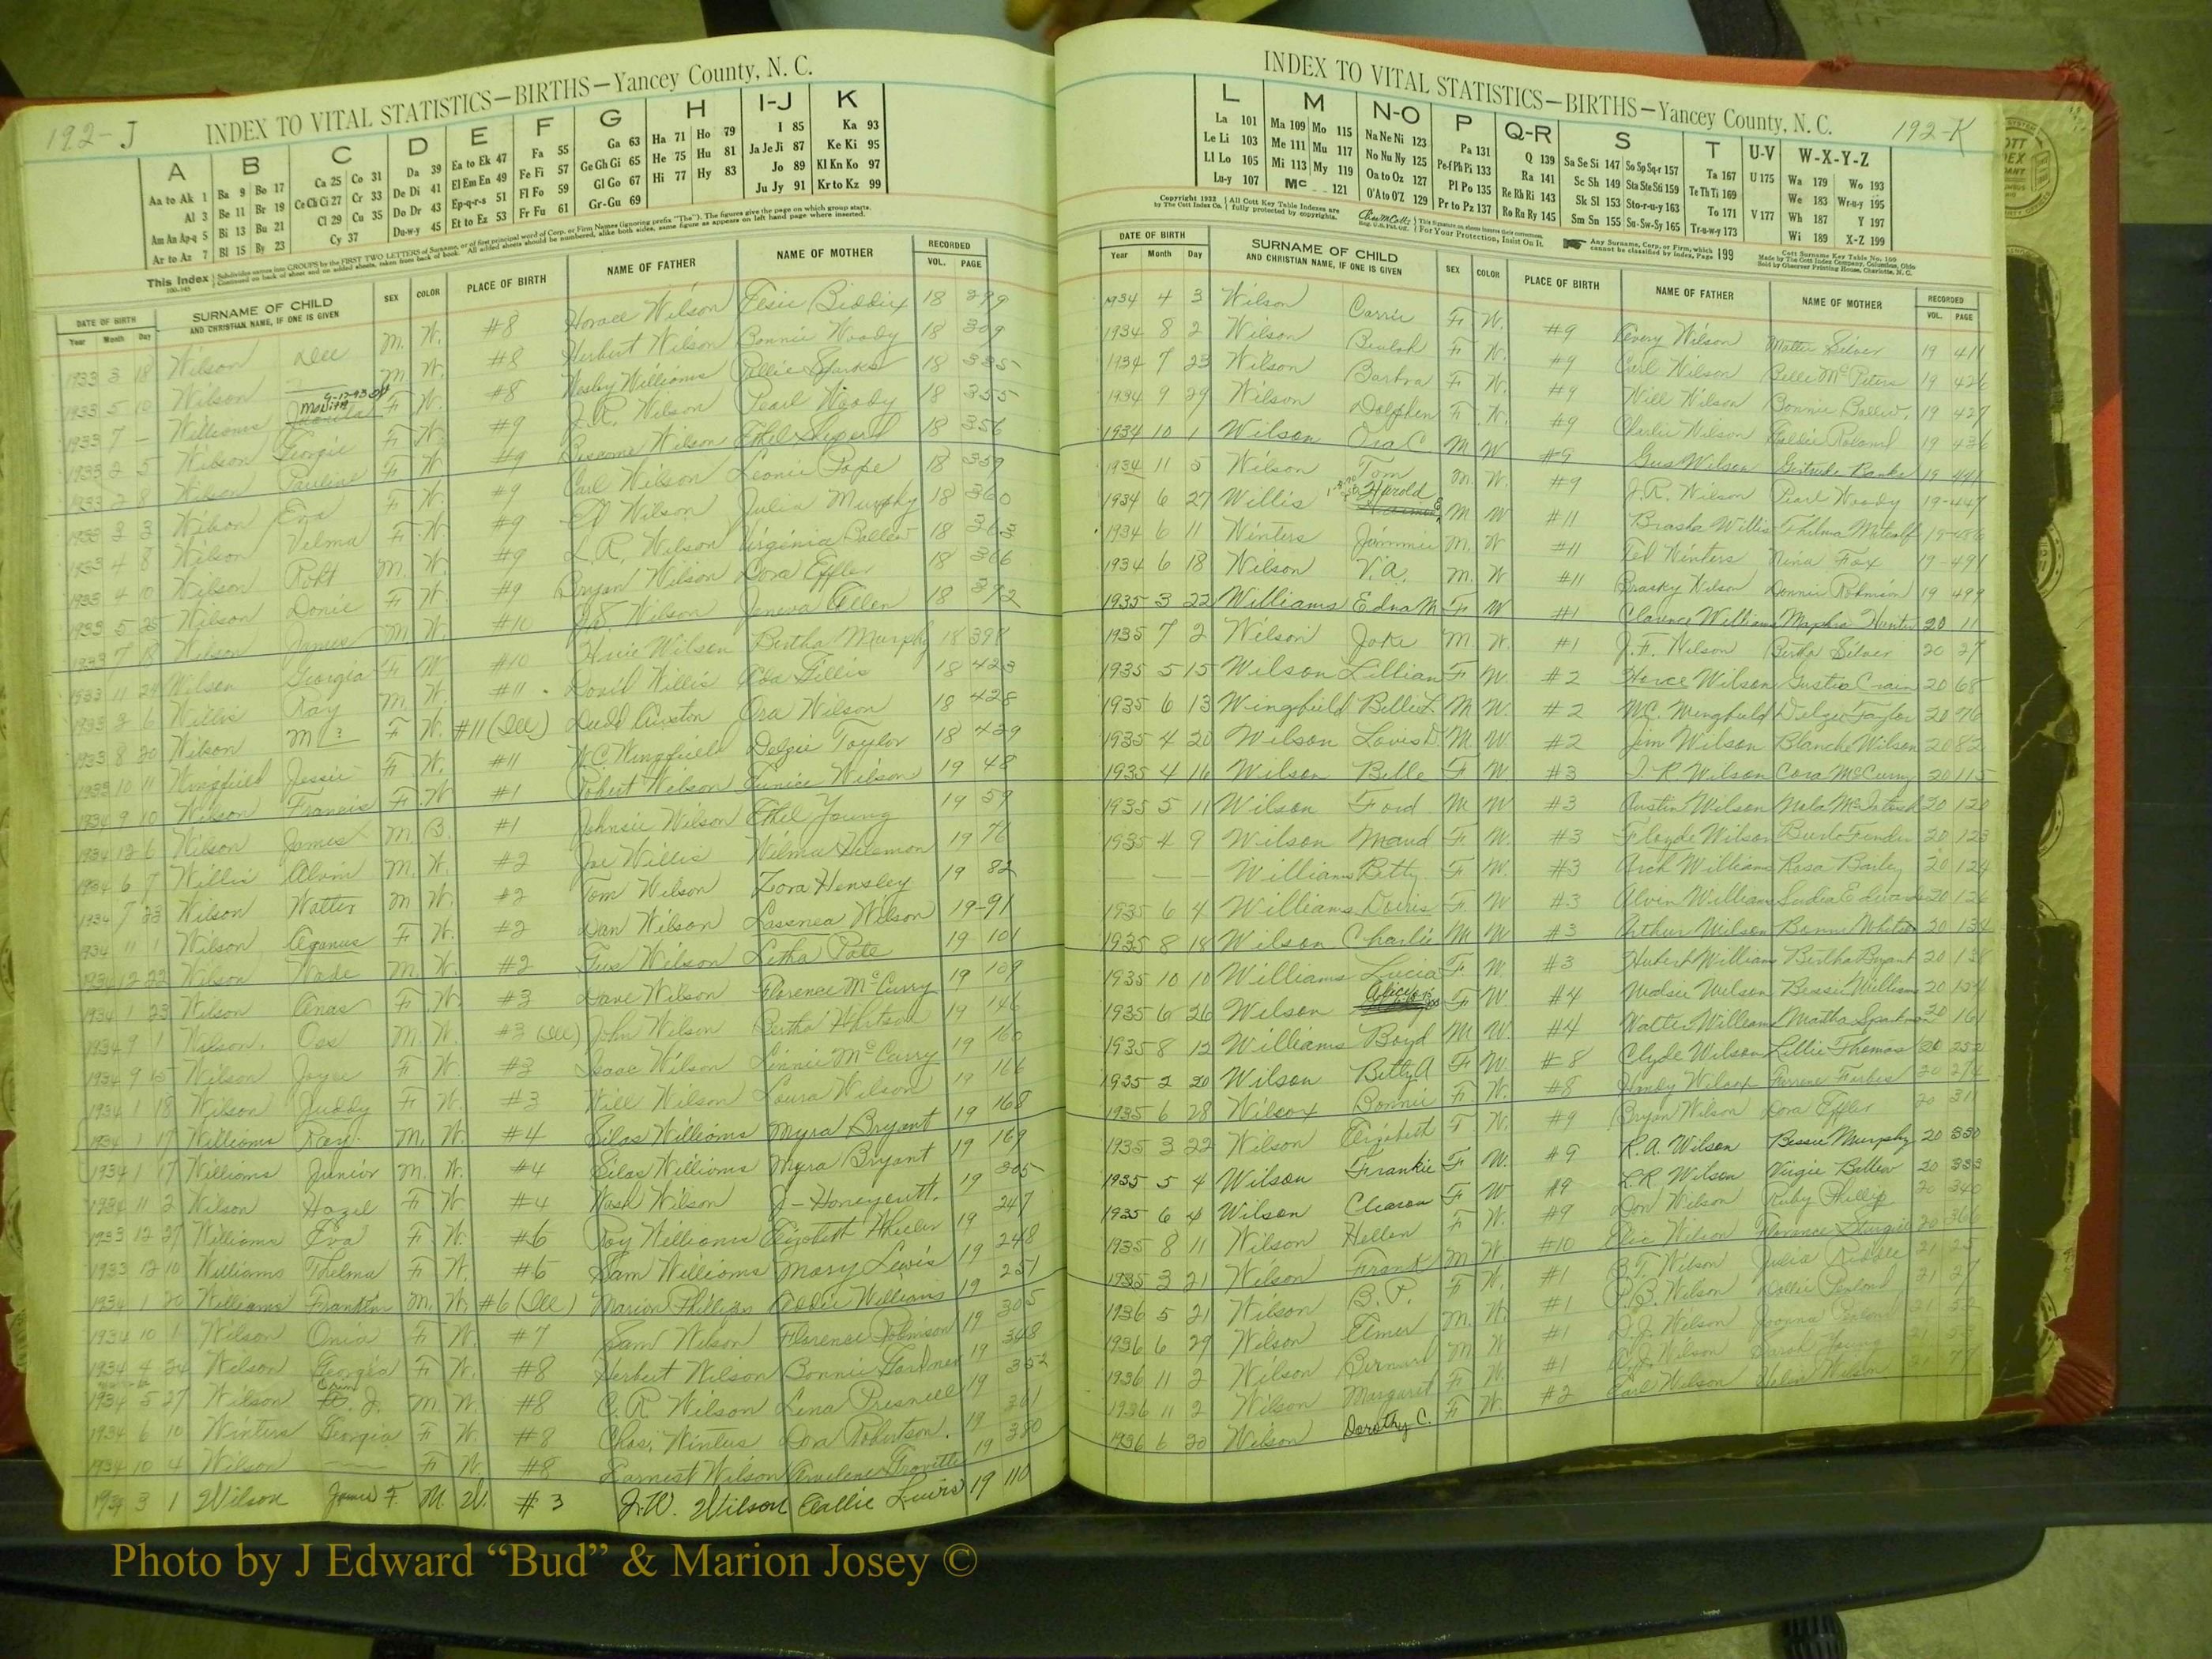 192-J
INDEX TO VITAL STATISTICS—BIRTHS—Yancey County, N. C.
A B C D E F G H I-J K
Aa to Ak 1 Ba 9 Bo 17 Ca 25 Co 31 Da 39 Ea to Ek 47 Fa 55 Ga 63 Ha 71 Ho 79 I 85 Ka 93
Al 3 Be 11 Br 19 Ce Ch Ci 27 Cr 33 De Di 41 El Em En 49 Fe Fi 57 Ge Gh Gi 65 He 75 Hu 81 Ja Je Ji 87 Ke Ki 95
Am An Ap-q 5 Bi 13 Bu 21 Cl 29 Cu 35 Do Dr 43 Ep-q-r-s 51 Fl Fo 59 Gl Go 67 Hi 77 Hy 83 Jo 89 Kl Kn Ko 97
Ar to Az 7 Bl 15 By 23 Cy 37 Du-w-y 45 Et to Ez 53 Fr Fu 61 Gr-Gu 69 Ju Jy 91 Kr to Kz 99
This Index
DATE OF BIRTH SURNAME OF CHILD SEX COLOR PLACE OF BIRTH NAME OF FATHER NAME OF MOTHER RECORDED
Year Month Day AND CHRISTIAN NAME, IF ONE IS GIVEN VOL. PAGE
1933 3 18 Wilson Dee M. W. #8 Horace Wilson Elsie Biddix 18 299
1933 5 10 Wilson — M W. #8 Herbert Wilson Bonnie Woody 18 309
1933 7 — Williams F W. #8 Wesley Williams Sparks 18 335
1933 2 5 Wilson Georgie F W. #9 J.R. Wilson Pearl Woody 18 355
1933 2 8 Wilson Pauline F W #9 Wilson Ethel 18 356
1933 3 3 Wilson Eva F W. #9 Carl Wilson Leonie Pope 18 359
1933 4 8 Wilson Velma F W. #9 Ed Wilson Julia Murphy 18 360
1933 4 10 Wilson Robt M. W. #9 L.R. Wilson Virginia Ballew 18 363
1933 5 25 Wilson Donie F W. #9 Bryan Wilson Dora Effler 18 366
1933 7 18 Wilson James M. W. #10 Wilson Jeneva Allen 18 392
1933 11 29 Wilson Georgia F W #10 Wilson Bertha Murphy 18 398
1933 3 6 Willis Ray M W. #11 David Willis Ada Gillis 18 423
1933 8 20 Wilson M ? F W. #11 (Ill) Dudd Auston Ora Wilson 18 428
1933 10 11 Wingfield Jessie F W. #11 W.C. Wingfield Delzie Taylor 18 439
1934 9 10 Wilson Francis F W #1 Robert Wilson Eunice Wilson 19 48
1934 12 6 Wilson James M. B. #1 Johnsie Wilson Ethel Young 19 59
1934 6 7 Willis Alvin M. W. #2 Joe Willis Wilma 19 76
1934 7 23 Wilson Walter M W. #2 Tom Wilson Zora Hensley 19 82
1934 11 1 Wilson F W. #2 Dan Wilson Wilson 19-91
1934 12 22 Wilson Wade M. W. #2 Gus Wilson Letha Pate 19 101
1934 1 23 Wilson Anas F W. #3 Dave Wilson Florence McCurry 19 109
1934 9 1 Wilson. M. W. #3 (Ill) John Wilson Bertha Whitson 19 146
1934 9 15 Wilson Joyce F W. #3 Isaac Wilson Linnie McCurry 19 160
1934 1 18 Wilson Juddy F W. #3 Will Wilson Laura Wilson 19 166
1934 1 17 Williams Ray. M. W. #4 Silas Williams Myra Bryant 19 168
1934 1 17 Williams Junior M. W. #4 Silas Williams Myra Bryant 19 169
1934 11 2 Wilson Hazel F W #4 Wash Wilson J— Honeycutt. 19 205
1933 12 27 Williams Eva F W. #6 Roy Williams Elizabeth Wheeler 19 247
1933 12 10 Williams Thelma F W. #6 Sam Williams Mary Lewis 19 248
1934 1 20 Williams Franklin M. W. #6 (Ill) Marion Phillips Addie Williams 19 251
1934 10 1 Wilson Onia F W. #7 Sam Wilson Florence Robinson 19 305
1934 4 24 Wilson Georgia F W. #8 Herbert Wilson Bonnie Gardner 19 348
1934 5 27 Wilson J. M W. #8 C. R Wilson Lena Presnell 19 352
1934 6 10 Winters Georgia F W. #8 Chas. Winters Dora Robertson. 19 361
1934 10 4 Wilson — F W. #8 Earnest Wilson 19 380
1934 3 1 Wilson James F. M W. #3 J.W. Wilson Callie Lewis 19 110
INDEX TO VITAL STATISTICS—BIRTHS—Yancey County, N. C. 192-K
L M N-O P Q-R S T U-V W-X-Y-Z
La 101 Ma 109 Mo 115 Na Ne Ni 123 Pa 131 Q 139 Sa Se Si 147 So Sp Sq-r 157 Ta 167 U 175 Wa 179 Wo 193
Le Li 103 Me 111 Mu 117 No Nu Ny 125 Pe-f Ph Pi 133 Ra 141 Sc Sh 149 Sta Ste Sti 159 Te Th Ti 169 We 183 Wr-u-y 195
Ll Lo 105 Mi 113 My 119 Oa to Oz 127 Pl Po 135 Re Rh Ri 143 Sk Sl 153 Sto-r-u-y 163 To 171 V 177 Wh 187 Y 197
Lu-y 107 Mc 121 O'A to O'Z 129 Pr to Pz 137 Ro Ru Ry 145 Sm Sn 155 Su-Sw-Sy 165 Tr-u-w-y 173 Wi 189 X-Z 199
Copyright 1932 by The Cott Index Co. All Cott Key Table Indexes are fully protected by copyrights. For Your Protection, Insist On It. Any Surname, Corp. or Firm, which cannot be classified by Index, Page 199
DATE OF BIRTH SURNAME OF CHILD SEX COLOR PLACE OF BIRTH NAME OF FATHER NAME OF MOTHER RECORDED
Year Month Day AND CHRISTIAN NAME, IF ONE IS GIVEN VOL. PAGE
1934 4 3 Wilson Carrie F W. #9 Wilson Mattie Silver 19 411
1934 8 2 Wilson Beulah F W. #9 Carl Wilson Belle McPeters 19 426
1934 7 23 Wilson Barbra F W. #9 Will Wilson Bonnie Ballew. 19 427
1934 9 29 Wilson Dolphen F W. #9 Charlie Wilson Roland 19 436
1934 10 1 Wilson Ora C M W #9 Gus Wilson Gertrude Banks 19 441
1934 11 5 Wilson Tom M. W. #9 J.R. Wilson Pearl Woody 19-447
1934 6 27 Willis Harold M W #11 Braska Willis Thelma Metcalf 19-486
1934 6 11 Winters Jimmie M. W #11 Ted Winters Nina Fox 19-491
1934 6 18 Wilson V.A. M. W #11 Brasky Wilson Donnie Robinson 19 499
1935 3 22 Williams Edna M F W #1 Clarence Williams Hunter 20 11
1935 7 2 Wilson Jake M. W. #1 J.F. Wilson Bertha Silver 20 27
1935 5 15 Wilson Lillian F W. #2 Horce Wilson Gustia Crain 20 68
1935 6 13 Wingfield Billie L M W. #2 W.C. Wingfield Delzie Taylor 20 76
1935 4 20 Wilson Lovis D M W #2 Jim Wilson Blanche Wilson 20 82
1935 4 16 Wilson Belle F W #3 J. R. Wilson Cora McCurry 20 115
1935 5 11 Wilson Ford M W #3 Austin Wilson Nola McIntosh 20 120
1935 4 9 Wilson Maud F. W. #3 Floyde Wilson 20 123
— — — Williams Betty F W. #3 Arch Williams Rosa Bailey 20 124
1935 6 4 Williams Doiris F W #3 Alvin Williams Edwards 20 126
1935 8 18 Wilson Charlie M W #3 Arthur Wilson Whitson 20 134
1935 10 10 Williams Lucia F W. #3 Hubert Williams Bertha Bryant 20 138
1935 6 26 Wilson F W #4 Wilson Bessie Williams 20 154
1935 8 12 Williams Boyd M W. #4 Walter Williams Martha 20 161
1935 2 20 Wilson Betty A F W #8 Clyde Wilson Lillie Thomas 20 252
1935 6 28 Wilcox Bonnie F W. #8 Wilcox Forbes 20 274
1935 3 22 Wilson Elizabeth F. W. #9 Bryan Wilson Dora Effler 20 311
1935 5 4 Wilson Frankie F W. #9 R.A. Wilson Bessie Murphy 20 330
1935 6 4 Wilson F W #9 L.R. Wilson Virgie Ballew 20 333
1935 8 11 Wilson Hellen F W. #9 Don Wilson Ruby Phillip 20 340
1935 3 21 Wilson Frank M W #10 Wilson Florence 20 366
1936 5 21 Wilson B. P. F W. #1 B.T. Wilson Julia Riddle 21 25
1936 6 29 Wilson Elmer M. W. #1 P.B. Wilson Dollie Penland 21 27
1936 11 2 Wilson Bernard M W #1 D.J. Wilson
1936 11 2 Wilson Margaret F W. #1 D.J. Wilson Sarah Young
1936 6 20 Wilson Dorothy C. F W. #2 Carl Wilson Helen Wilson
Photo by J Edward “Bud” & Marion Josey ©